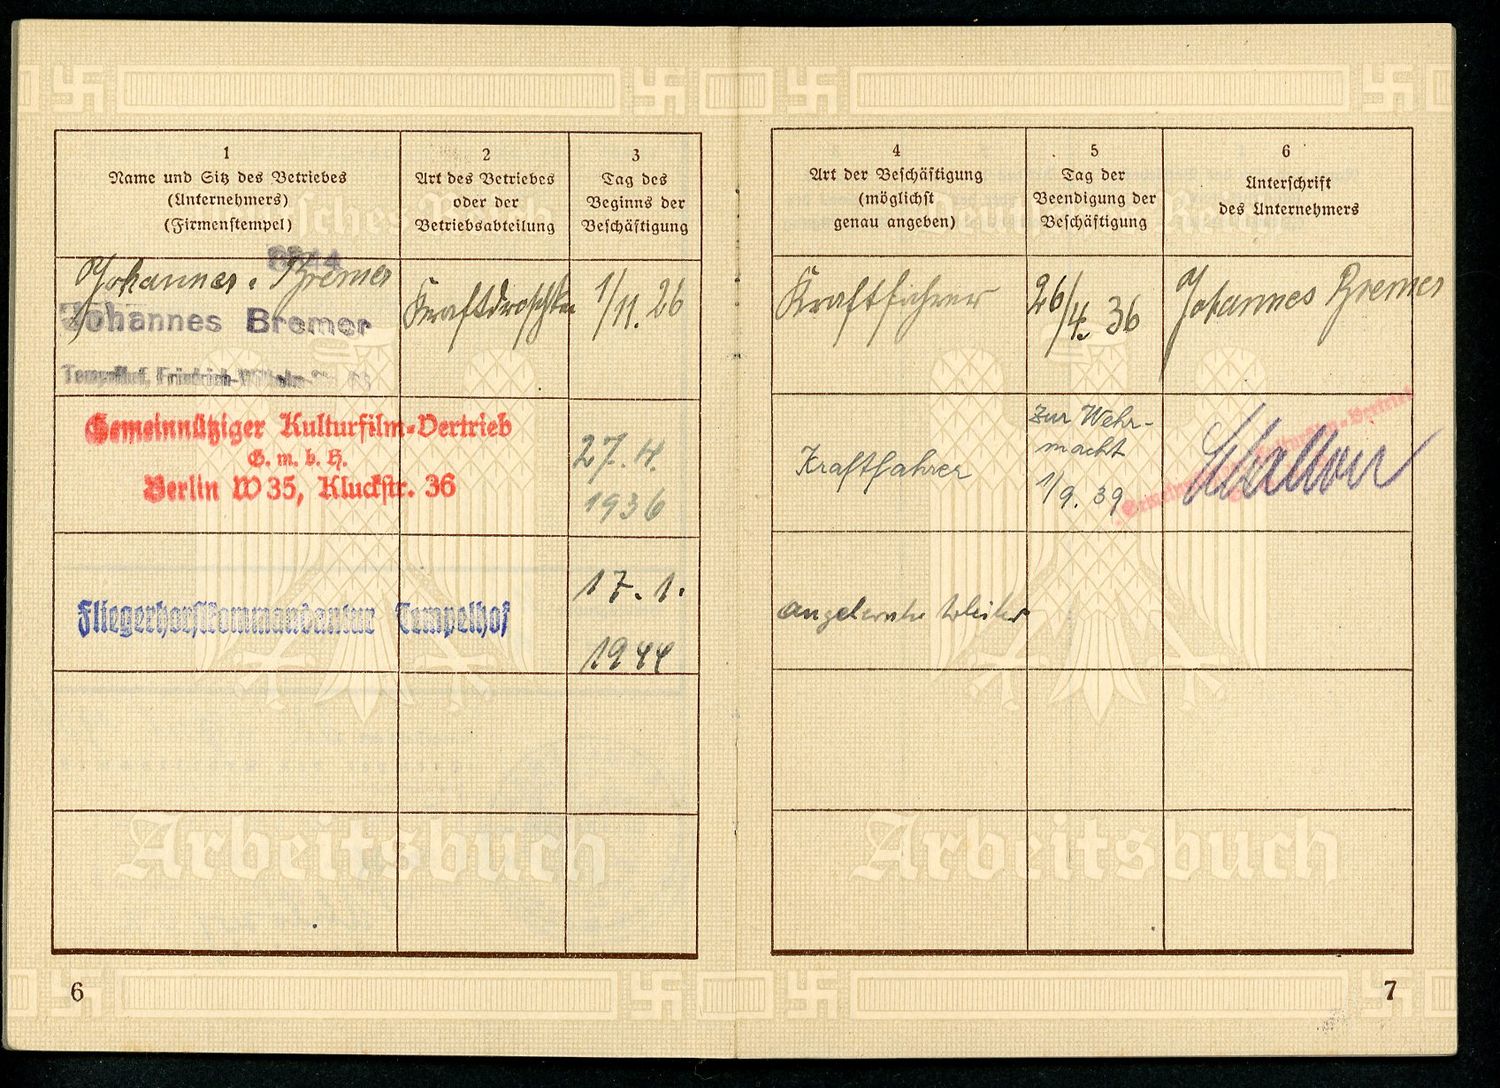 1
Name und Sitz des Betriebes
(Unternehmers)
(Firmenstempel)
2
Art des Betriebes
oder der
Betriebsabteilung
3
Tag des
Beginns der
Beschäftigung
4
Art der Beschäftigung
(möglichst
genau angeben)
5
Tag der
Beendigung der
Beschäftigung
6
Unterschrift
des Unternehmers
Johannes Bremer
Johannes Bremer
Tempelhof, Friedrich-Wilhelm-Str.
Kraftdroschken
1/11. 26
Kraftfahrer
26/4. 36
Johannes Bremer
Gemeinnütziger Kulturfilm-Vertrieb
G. m. b. H.
Berlin W 35, Kluckstr. 36
27. 4.
1936
Kraftfahrer
zur Wehr-
macht
1/9. 39
Gemeinnütziger Kulturfilm-Vertrieb
Fliegerhorstkommandantur Tempelhof
17. 1.
1944
angelernter Arbeiter
Deutsches Reich
Arbeitsbuch
Deutsches Reich
Arbeitsbuch
6
7